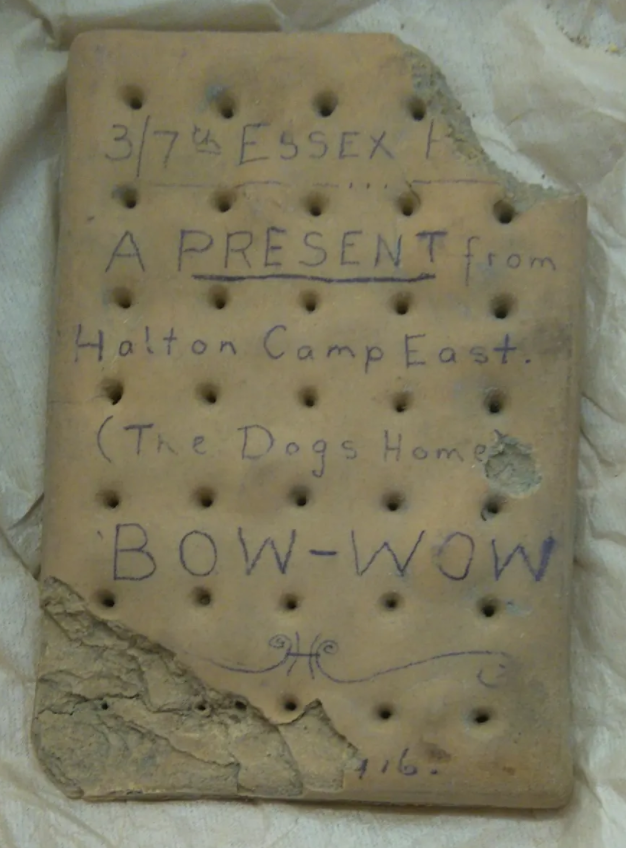 3/7th ESSEX
A PRESENT from
Halton Camp East.
(The Dogs Home
BOW-WOW